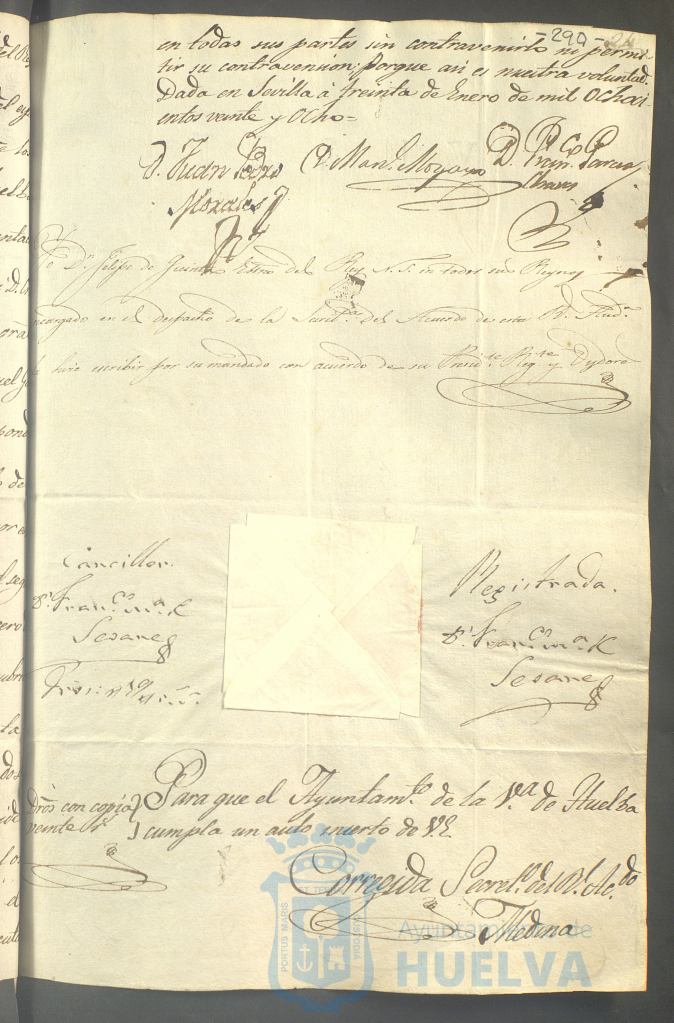 -290-
en todas sus partes sin contravenirlo ni permi-
tir su contravension: porque asi es nuestra voluntad
Dada en Sevilla á treinta de Enero de mil Ochoci
entos veinte y Ocho=
D. Juan Pedro
Morales
D. Man.l Moyano
D. Fran.co Garcia
Chaves
Yo D.n Felipe de Quinta Esno del Rey N. S. en todos sus Reynos
encargado en el despacho de la Secret.a del Acuerdo de esta R.l Aud.a
la hice escribir por su mandado con acuerdo de su Presid.te Reg.te y Oydores
Canciller.
D.n Fran.co M.a
Sesane
Registrada.
D.n Fran.co M.a
Sesane
Dros con copia
veinte r.s
Para que el Ayuntam.to de la V.a de Huelba
cumpla un auto inserto de V.E
Corregida Secret.o del R.l Ac.do
Medina
PORTUS MARIS
CUSTODIA
Ayuntamiento de
HUELVA